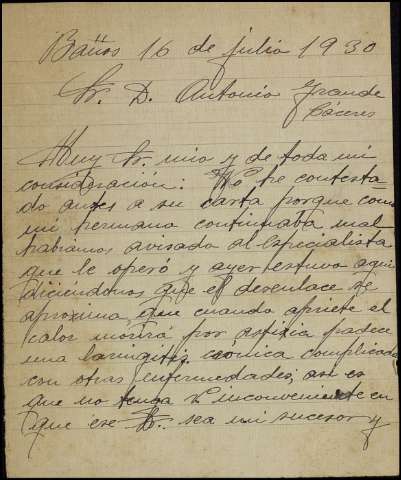 Baños 16 de julio 1930
Sr. D. Antonio Grande
Cáceres
Muy Sr. mio y de toda mi
consideración: No he contesta-
do antes a su carta porque como
mi hermano continuaba mal
habiamos avisado al especialista
que le operó y ayer estuvo aqui
diciéndonos que el desenlace se
aproxima que cuando apriete el
calor morirá por asfixia padece
una laringitis crónica complicada
con otras enfermedades, asi es
que no tenga V. inconveniente en
que ese Sr. sea mi sucesor y